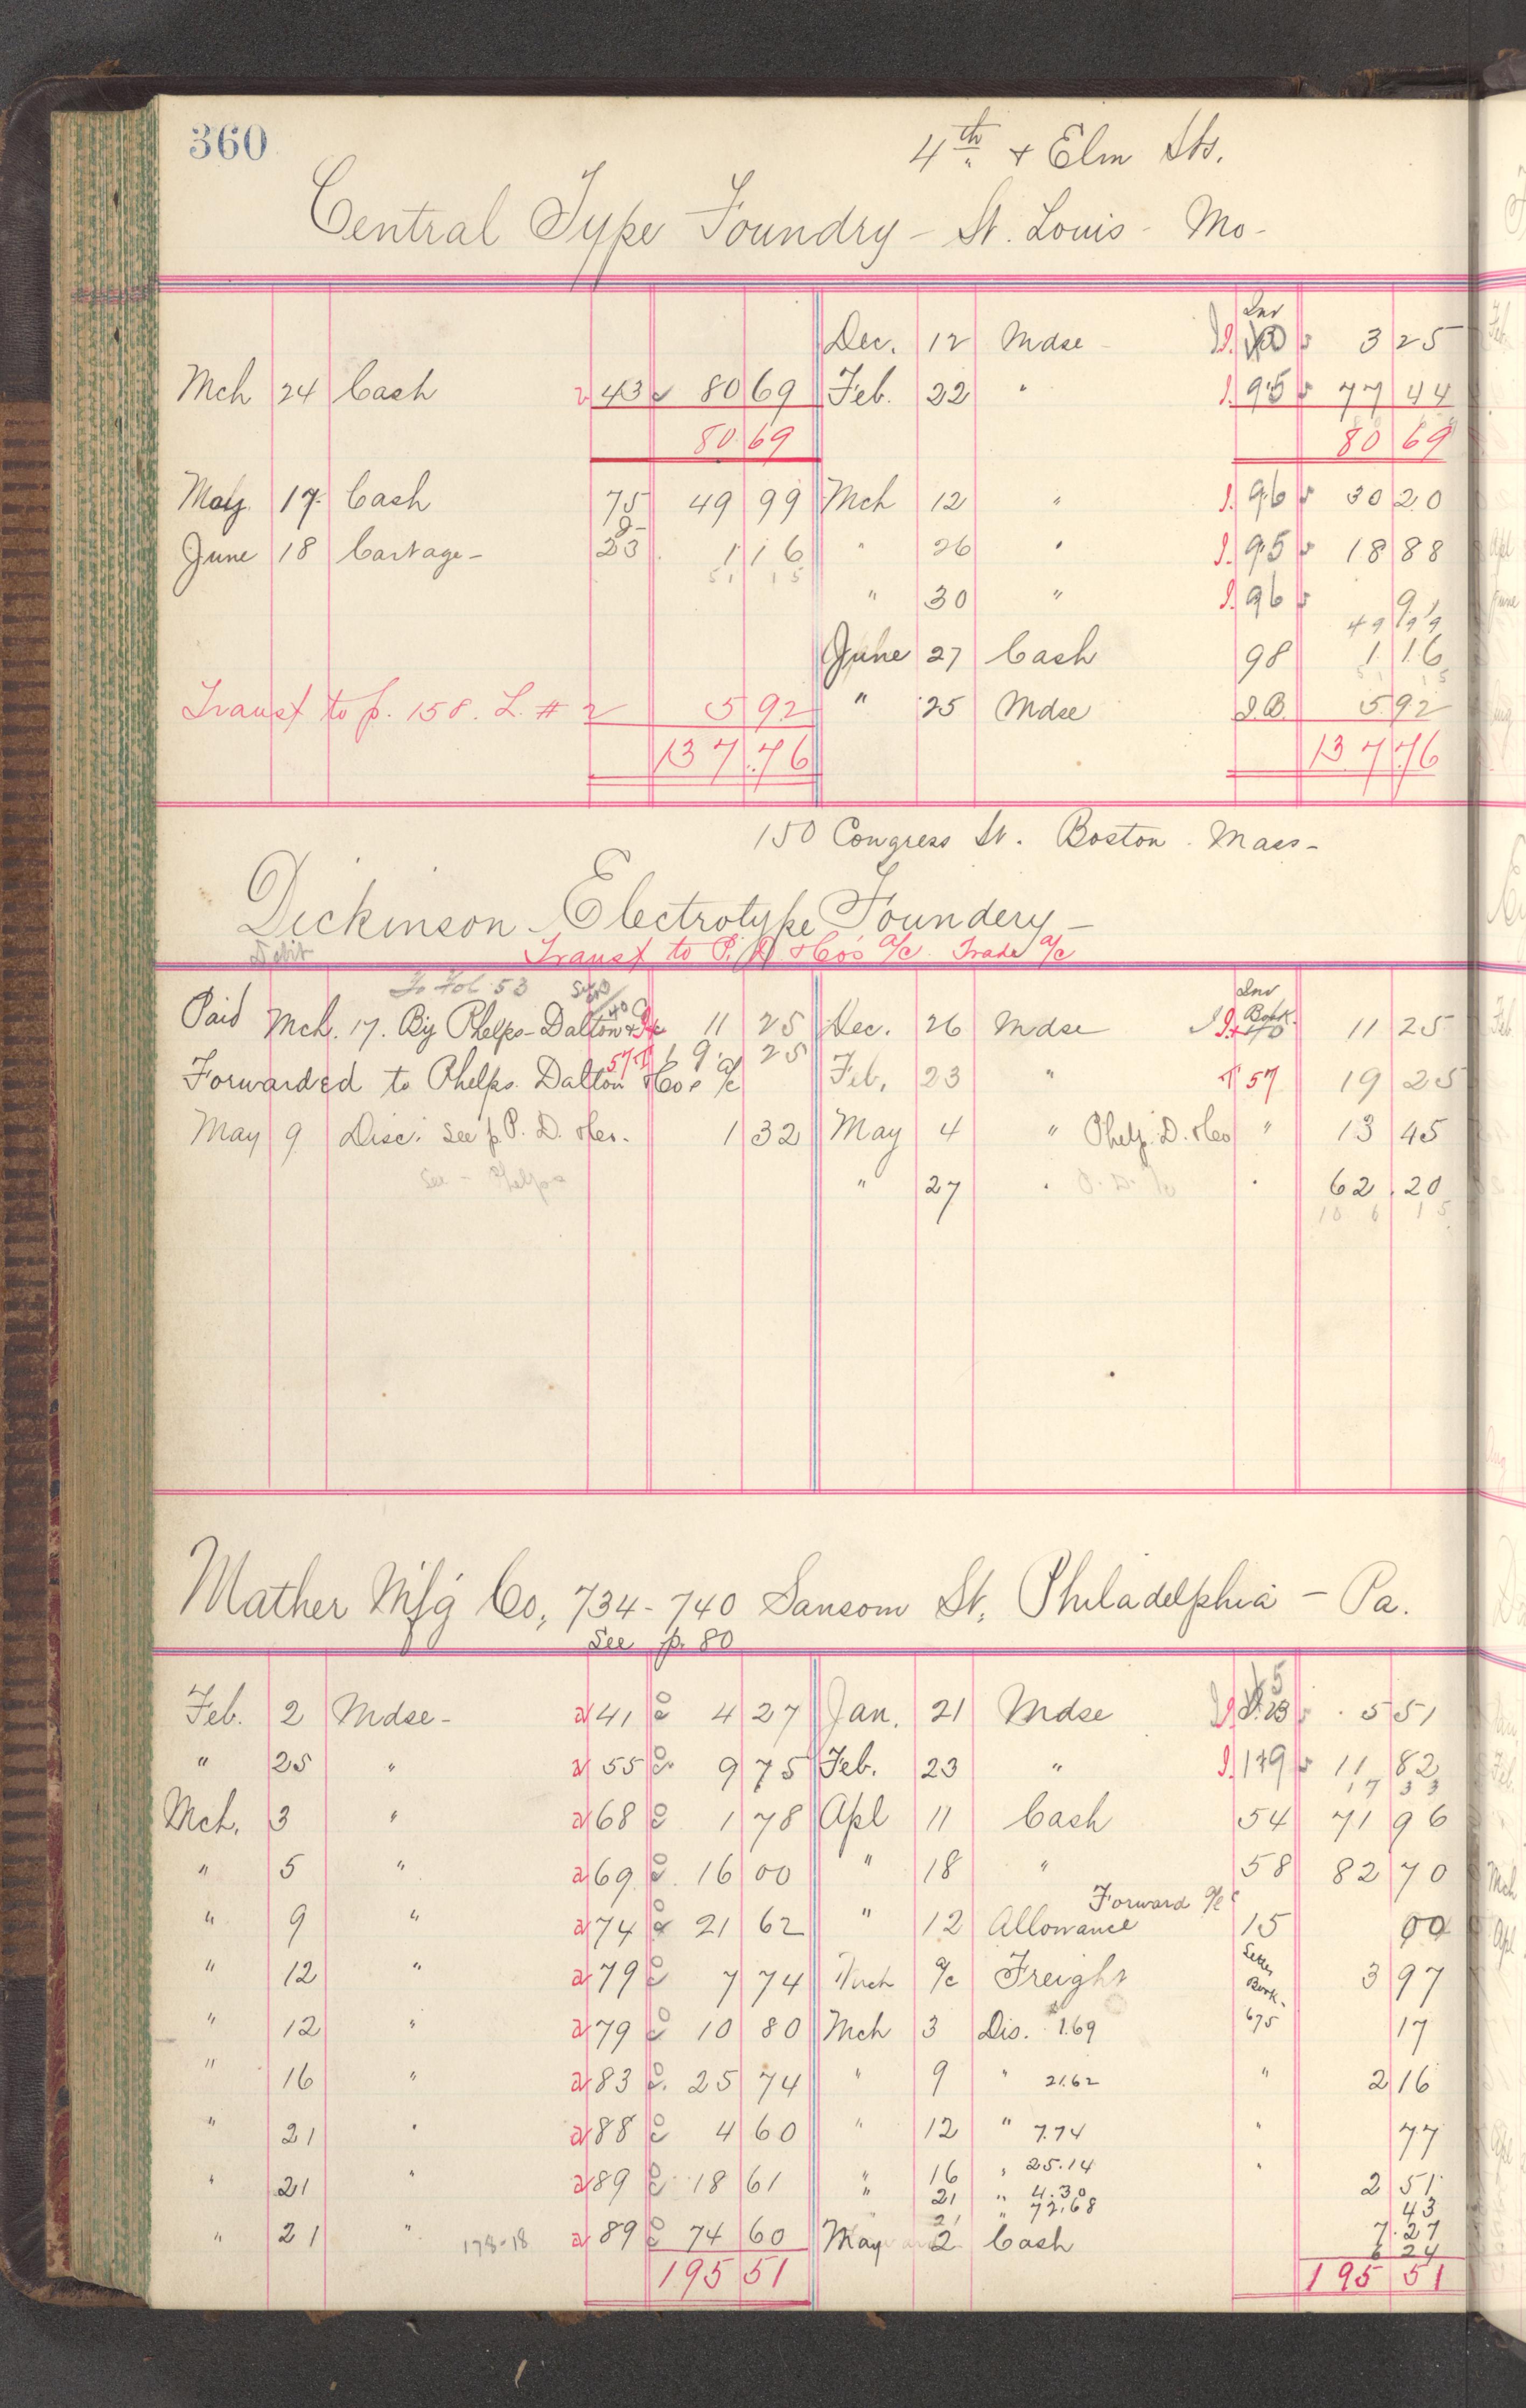 360
4th + Elm Sts.
Central Type Foundry - St. Louis - Mo -
Inv
Dec. 12 Mdse - 3 25
Mch 24 Cash 2 43 80 69 Feb. 22 " I. 95 77 44
80 69 80 69
May 17 Cash 75 49 99 Mch 12 " I. 96 30 20
June 18 Cartage - J- 23 1 16 " 26 " I. 95 18 88
51 15
" 30 " I. 96 91
49 99
June 27 Cash 98 1 16
51 15
Transf to p. 158. L. # 2 5 92 " 25 Mdse I.B. 5 92
137.76 137.76
150 Congress St. Boston. Mass -
Dickinson Electrotype Foundery -
Debit Transf to P. D. & Co's a/c. Trade a/c
To Fol. 53 Inv Book.
Paid Mch. 17. By Phelps-Dalton & Co 11 25 Dec. 26 Mdse 11 25
57 19 25
Forwarded to Phelps. Dalton & Co's a/c Feb. 23 " 57 19 25
May 9 Disc. See p P. D. & Co. 1 32 May 4 " Phelp. D. & Co " 13 45
See - Phelps " 27 " P. D. Co " 62.20
106 15
Mather M'f'g Co, 734-740 Sansom St, Philadelphia - Pa.
See p. 80
Feb. 2 Mdse - 41 4 27 Jan. 21 Mdse 5 51
" 25 " 55 9 75 Feb. 23 " I. 139 11 82
17 33
Mch. 3 " 68 1 78 Apl 11 Cash 54 71 96
" 5 " 69 16 00 " 18 " 58 82 70
Forward a/c
" 9 " 74 21 62 " 12 Allowance 15 00
" 12 " 79 7 74 a/c Freight Book. 3 97
" 12 " 79 10 80 Mch 3 Dis. 1.69 675 17
" 16 " 83 25 74 " 9 " 21.62 " 2 16
" 21 " 88 4 60 " 12 " 7.74 " 77
" 21 " 89 18 61 " 16 " 25.14 " 2 51
" 21 " 4.30 43
21 " 72.68 7.27
" 21 " 178-18 89 74 60 May 2 Cash 6 24
195 51 195 51